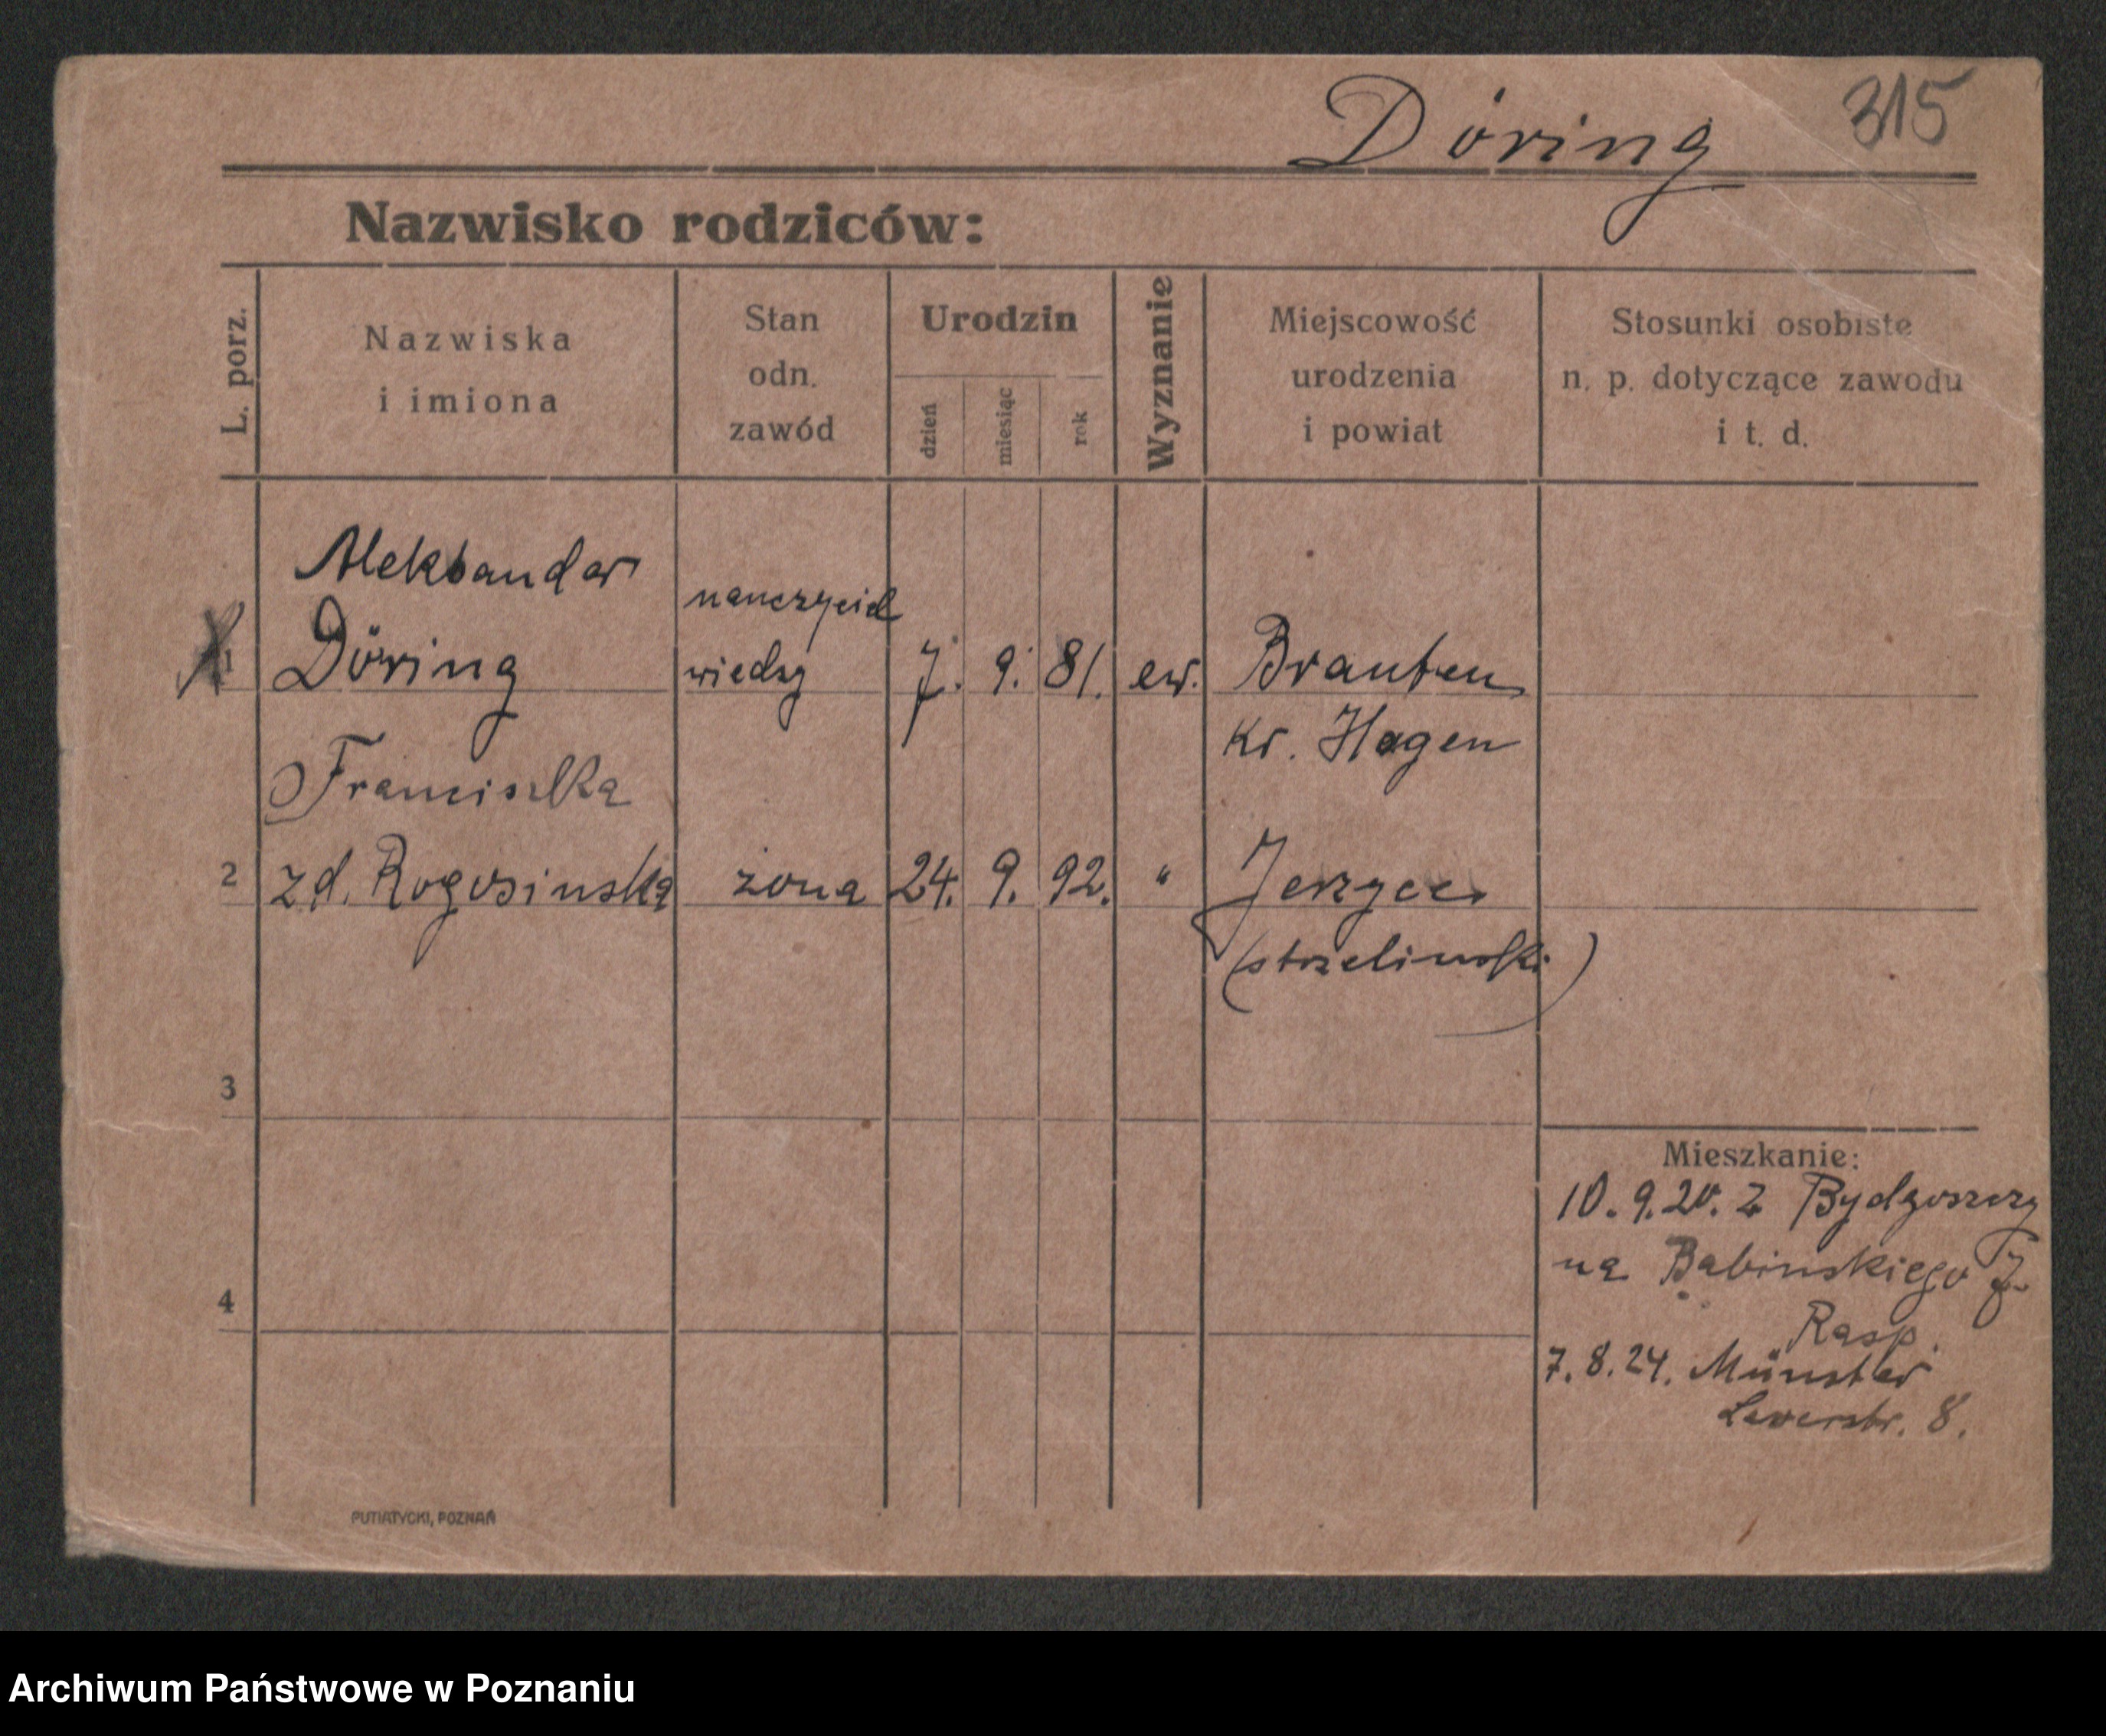 Döring 315
Nazwisko rodziców:
L. porz.
Nazwiska
i imiona
Stan
odn.
zawód
Urodzin
dzień
miesiąc
rok
Wyznanie
Miejscowość
urodzenia
i powiat
Stosunki osobiste
n. p. dotyczące zawodu
i t. d.
Aleksander
nauczyciel
1 Döring wiedzy 7. 9. 81. ew. Branten
kr. Hagen
Franciszka
2 zd. Rogosinska żona 24. 9. 92. " Jerzyce
(strzelinski)
3
Mieszkanie:
10. 9. 20. z Bydgoszczy
na Babinskiego 7
4
Rasp.
7. 8. 24. Münster
Leverstr. 8.
PUTIATYCKI, POZNAŃ
Archiwum Państwowe w Poznaniu